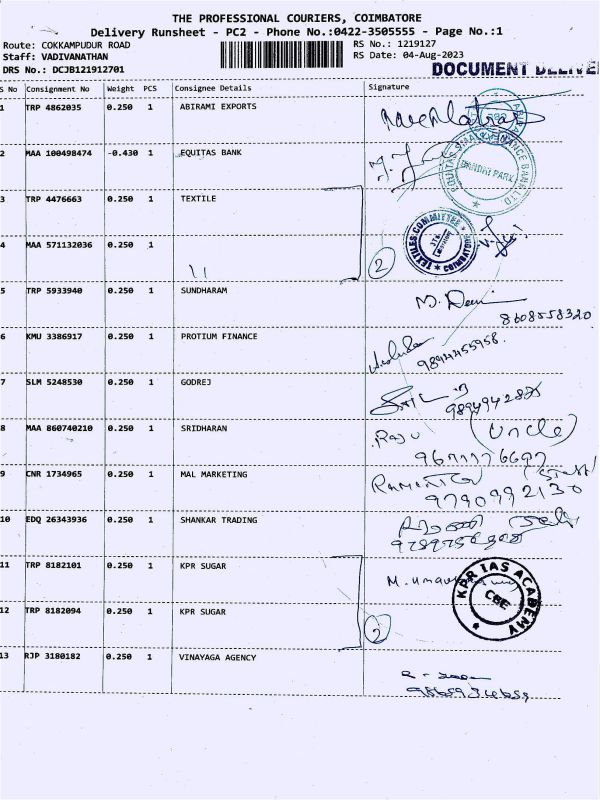 THE PROFESSIONAL COURIERS, COIMBATORE
Delivery Runsheet - PC2 - Phone No.:0422-3505555 - Page No.:1
Route: COKKAMPUDUR ROAD RS No.: 1219127
Staff: VADIVANATHAN RS Date: 04-Aug-2023
DRS No.: DCJB121912701 DOCUMENT
S No Consignment No Weight PCS Consignee Details Signature
1 TRP 4862035 0.250 1 ABIRAMI EXPORTS
2 MAA 100498474 -0.430 1 EQUITAS BANK
EQUITAS SMALL FINANCE BANK LTD
GANDHI PARK
3 TRP 4476663 0.250 1 TEXTILE
TEXTILES COMMITTEE
4 MAA 571132036 0.250 1 2
5 TRP 5933940 0.250 1 SUNDHARAM
8608558320
6 KMU 3386917 0.250 1 PROTIUM FINANCE
9894455958
7 SLM 5248530 0.250 1 GODREJ
8 MAA 860740210 0.250 1 SRIDHARAN
Raju (Uncle)
9 CNR 1734965 0.250 1 MAL MARKETING
9790992130
10 EDQ 26343936 0.250 1 SHANKAR TRADING
11 TRP 8182101 0.250 1 KPR SUGAR
KPR IAS ACADEMY
CBE
12 TRP 8182094 0.250 1 KPR SUGAR 2
13 RJP 3180182 0.250 1 VINAYAGA AGENCY